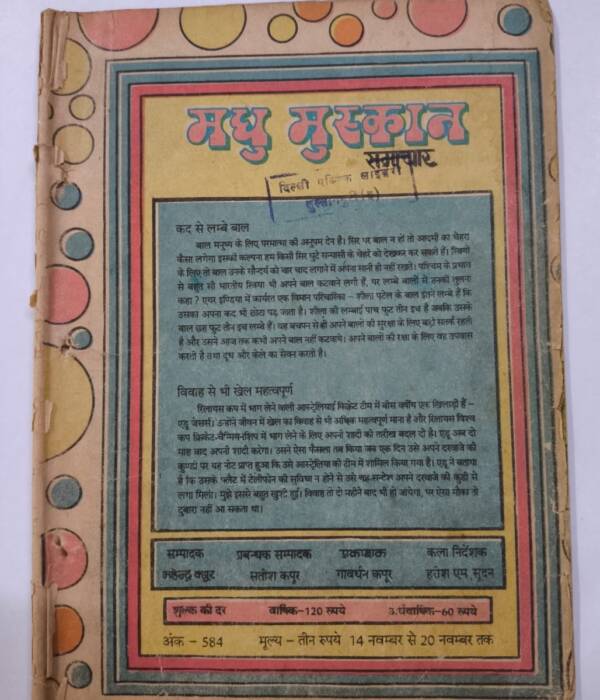 मधु मुस्कान
समाचार
दिल्ली पब्लिक लाइब्रेरी
कद से लम्बे बाल
बाल मनुष्य के लिए परमात्मा की अनुपम देन है। सिर पर बाल न हों तो आदमी का चेहरा
कैसा लगेगा इसकी कल्पना हम किसी सिर घुटे सन्यासी के चेहरे को देखकर कर सकते हैं। स्त्रियों
के लिए तो बाल उनके सौन्दर्य को चार चांद लगाने में अपना सानी ही नहीं रखते। पश्चिम के प्रभाव
से बहुत सी भारतीय स्त्रियां भी अपने बाल कटवाने लगी हैं, पर लम्बे बालों से उनकी तुलना
कहां ? एयर इण्डिया में कार्यरत एक विमान परिचारिका – शीला पटेल के बाल इतने लम्बे हैं कि
उसका अपना कद भी छोटा पड़ जाता है। शीला की लम्बाई पांच फुट तीन इंच है जबकि उसके
बाल छह फुट तीन इंच लम्बे हैं। वह बचपन से ही अपने बालों की सुरक्षा के लिए बड़ी सतर्क रहती
है और उसने आज तक कभी अपने बाल नहीं कटवाये। अपने बालों की रक्षा के लिए वह उपवास
करती है तथा दूध और केले का सेवन करती है।
विवाह से भी खेल महत्वपूर्ण
रिलायंस कप में भाग लेने वाली आस्ट्रेलियाई क्रिकेट टीम में बीस वर्षीय एक खिलाड़ी हैं –
एंड्रू जेसर्स। उन्होंने जीवन में खेल का विवाह से भी अधिक महत्वपूर्ण माना है और रिलायंस विश्व
कप क्रिकेट-चैम्पियनशिप में भाग लेने के लिए अपनी शादी की तारीख बदल दी है। एंड्रू अब दो
माह बाद अपनी शादी करेगा। उसने ऐसा फैसला तब किया जब एक दिन उसे अपने दरवाजे की
कुण्डी पर यह नोट प्राप्त हुआ कि उसे आस्ट्रेलिया की टीम में शामिल किया गया है। एंड्रू ने बताया
है कि उसके फ्लैट में टेलीफोन की सुविधा न होने से उसे यह सन्देश अपने दरवाजे की कुंडी से
लगा मिला। मुझे इससे बहुत खुशी हुई। विवाह तो दो महीने बाद भी हो जायेगा, पर ऐसा मौका तो
दुबारा नहीं आ सकता था।
सम्पादक प्रबन्धक सम्पादक प्रकाशक कला निर्देशक
महेन्द्र कपूर सतीश कपूर गोवर्धन कपूर हरीश एम. सूदन
शुल्क की दर वार्षिक–120 रूपये अर्धवार्षिक–60 रूपये
अंक – 584 मूल्य – तीन रुपये 14 नवम्बर से 20 नवम्बर तक